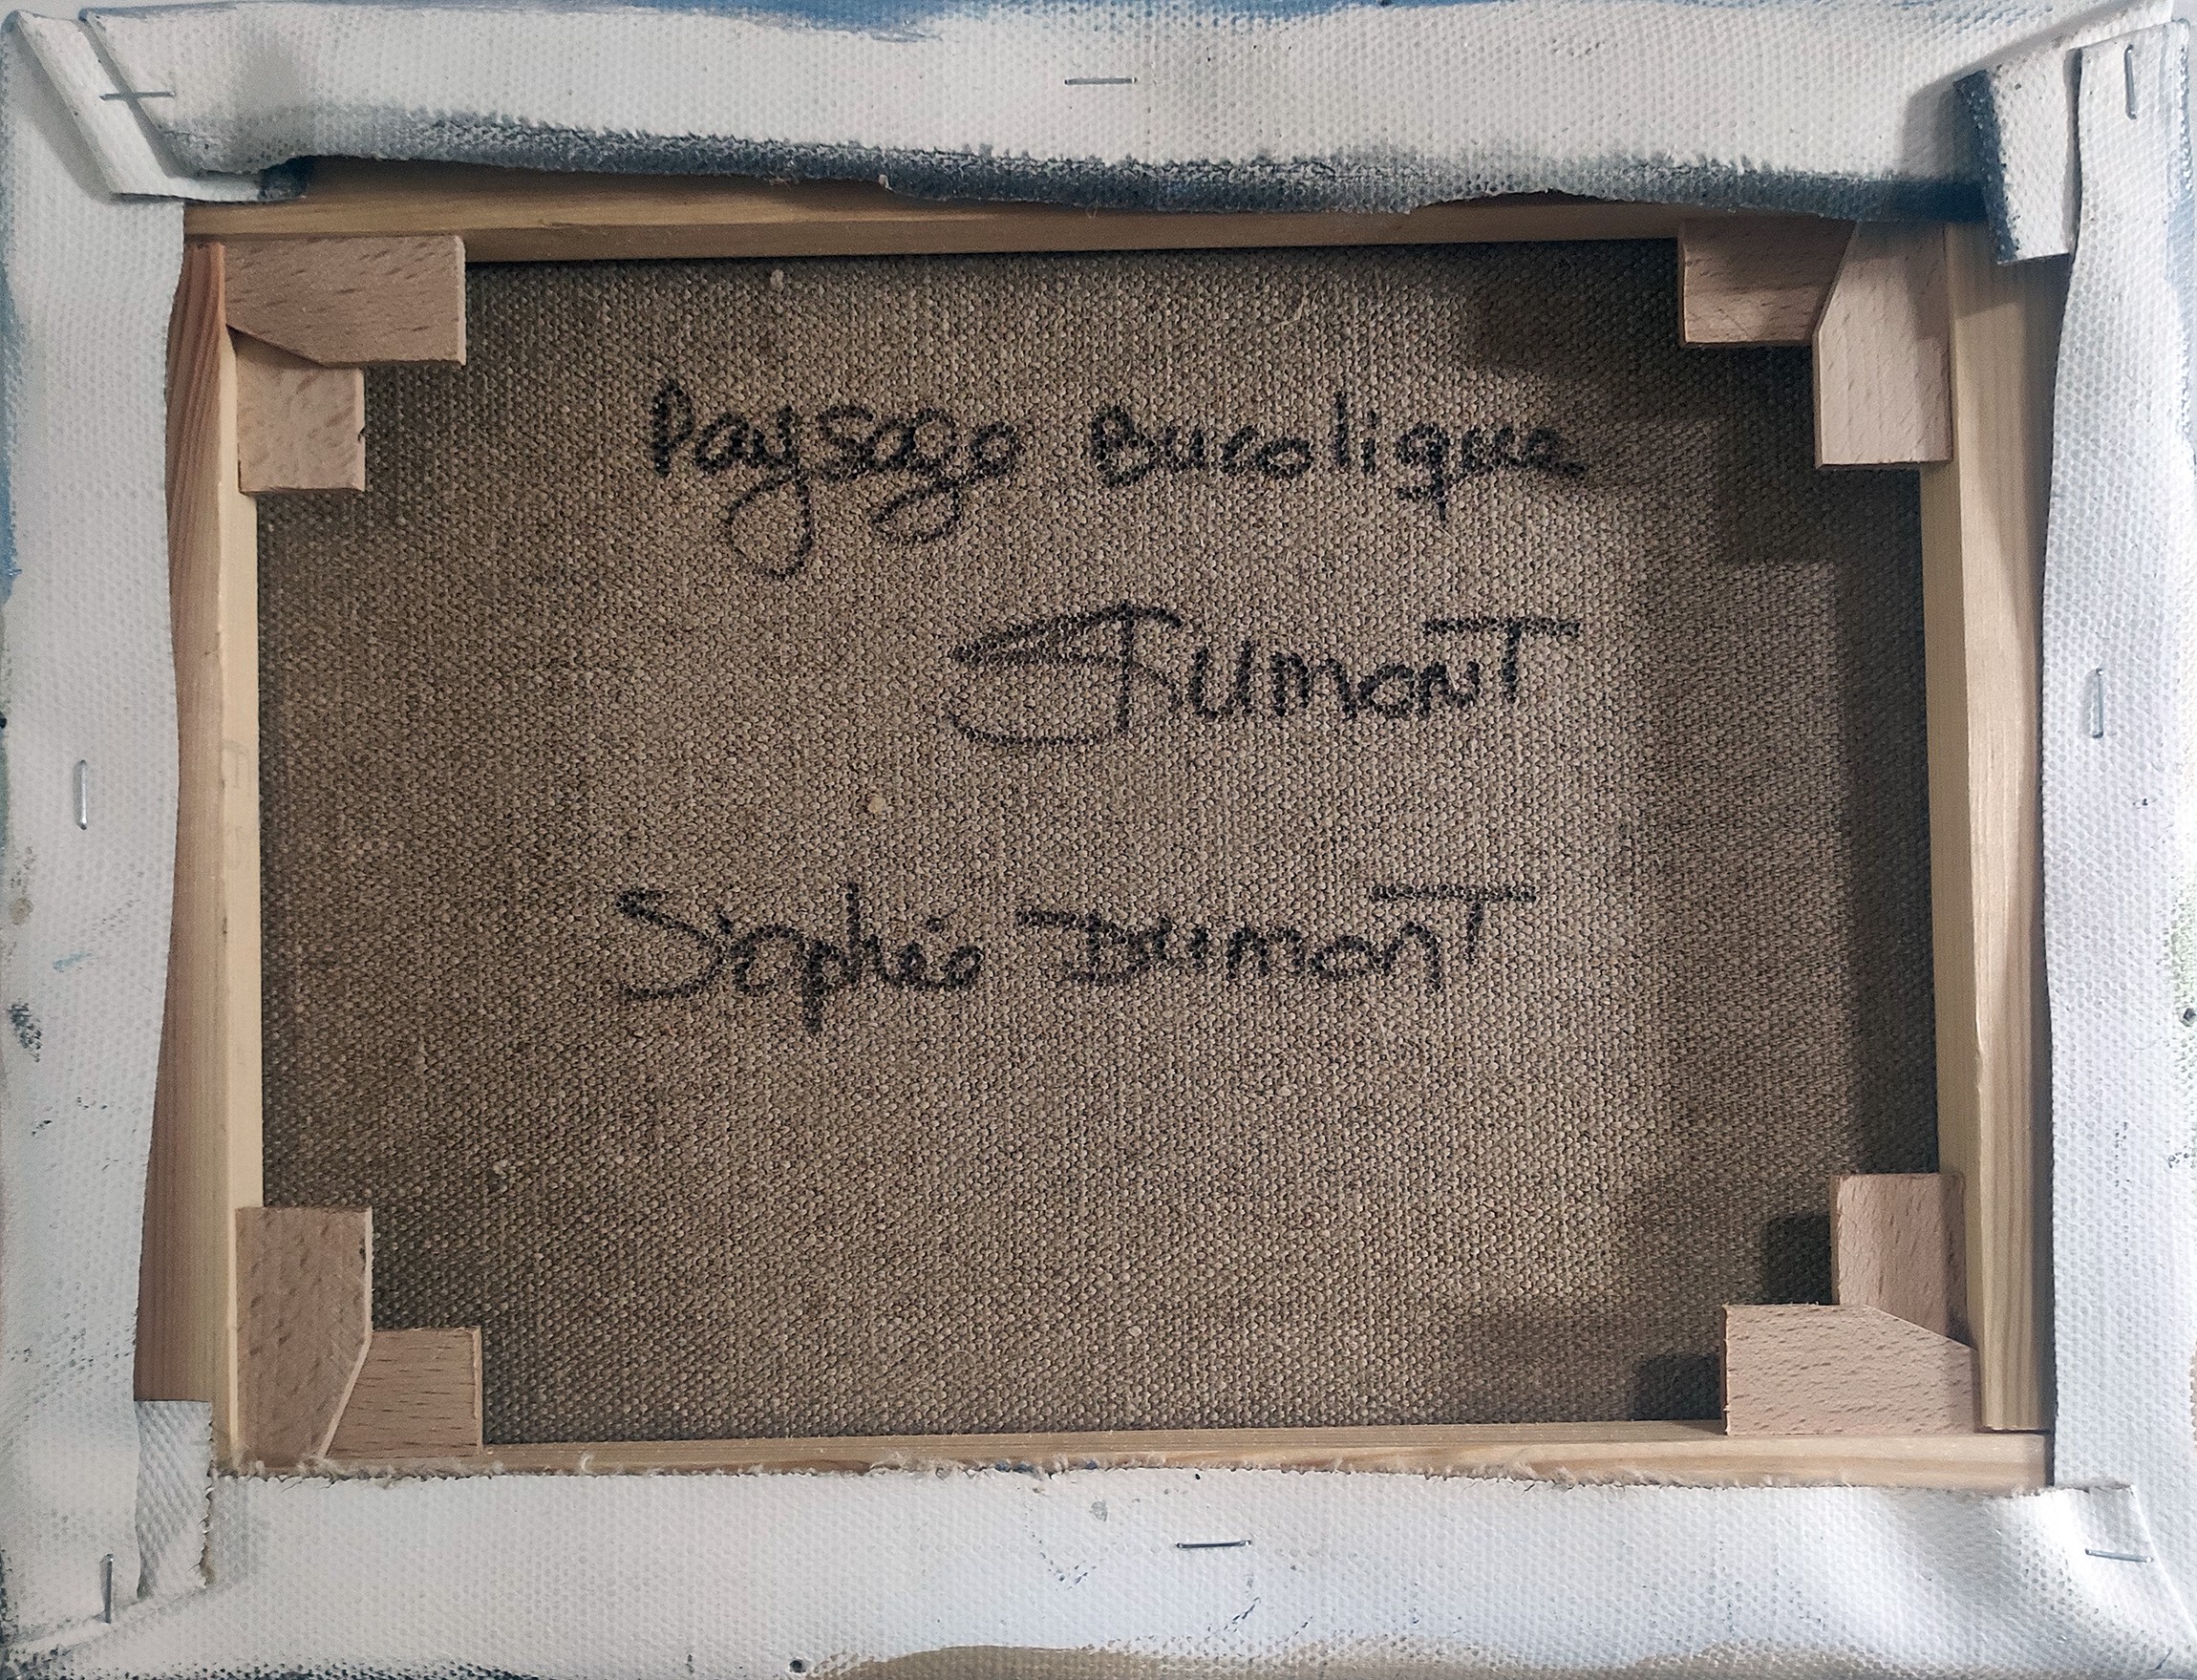 Paysage Bucolique
SDumonT
Sophie DumonT